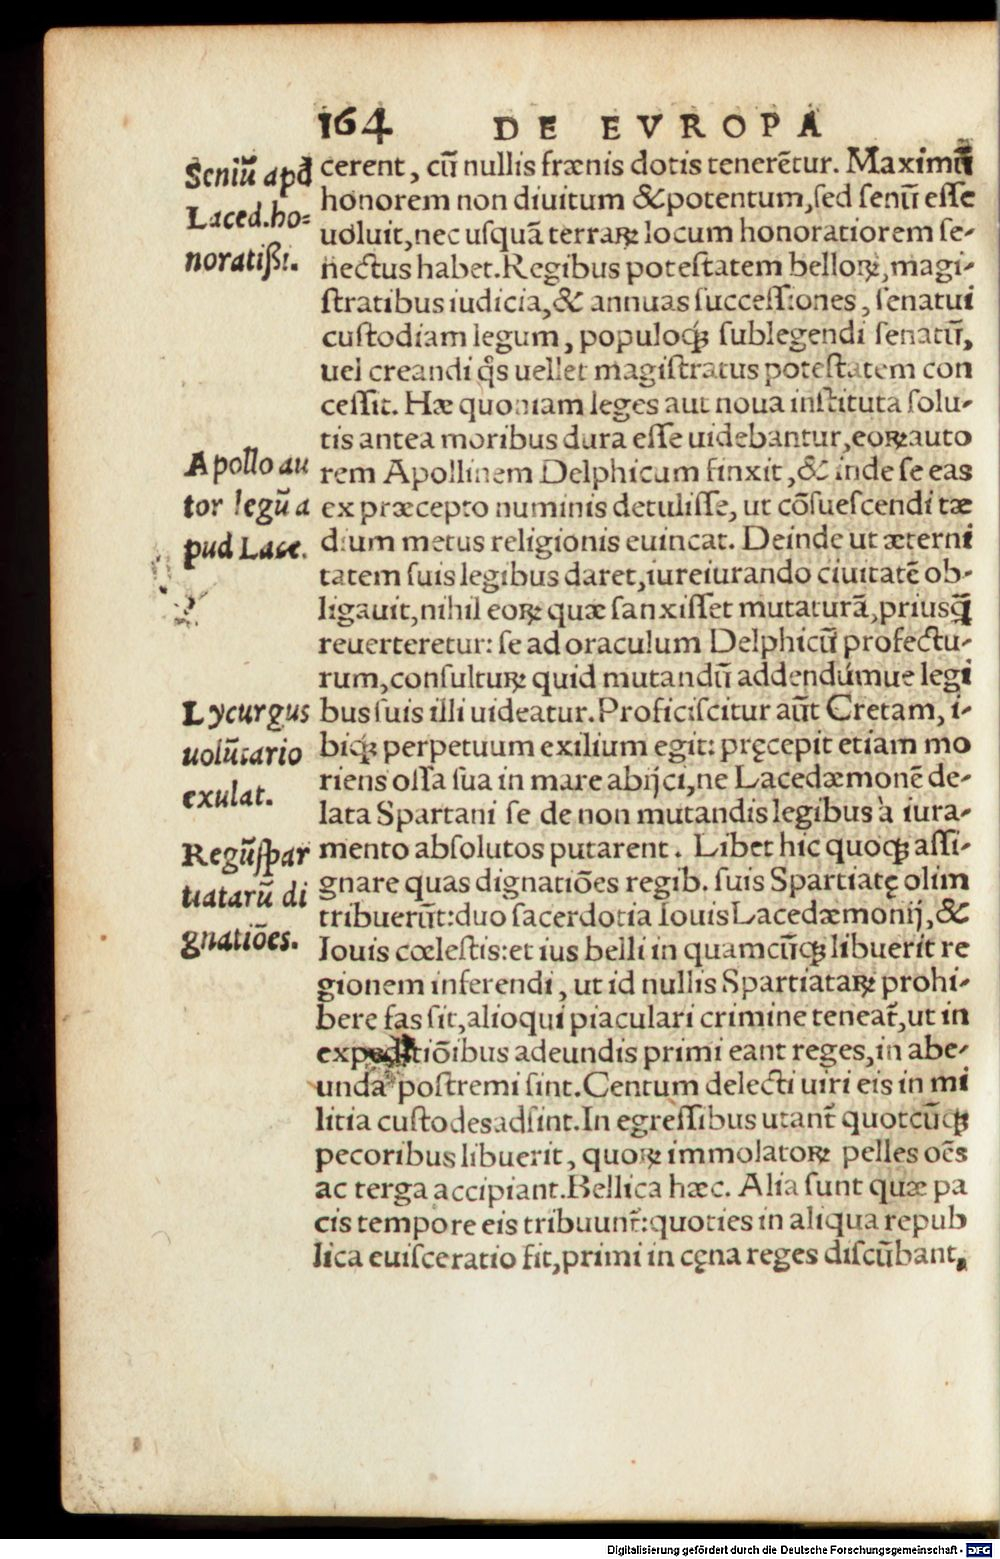 164 DE EVROPA
Seniū apđ
Laced.ho=
noratißi.
cerent, cū nullis frænis dotis tenerētur. Maximū
honorem non diuitum & potentum, ſed ſenū eſſe
uoluit, nec uſquā terraꝝ locum honoratiorem ſe-
nectus habet. Regibus poteſtatem belloꝝ, magi-
ſtratibus iudicia, & annuas ſucceſſiones, ſenatui
cuſtodiam legum, populoꝗ; ſublegendi ſenatū,
uel creandi q̊s uellet magiſtratus poteſtatem con
ceſſit. Hæ quoniam leges aut noua inſtituta ſolu-
tis antea moribus dura eſſe uidebantur, eoꝝ auto
Apollo au
tor legū a
pud Lace.
rem Apollinem Delphicum finxit, & inde ſe eas
ex præcepto numinis detuliſſe, ut cōſueſcendi tæ
dium metus religionis euincat. Deinde ut æterni
tatem ſuis legibus daret, iureiurando ciuitatē ob-
ligauit, nihil eoꝝ quæ ſanxiſſet mutaturā, priusq̄
reuerteretur: ſe ad oraculum Delphicū profectu-
rum, conſultuꝝ quid mutandū addendúmue legi
Lycurgus
uolūtario
exulat.
bus ſuis illi uideatur. Proficiſcitur aūt Cretam, i-
biꝗ; perpetuum exilium egit: pręcepit etiam mo
riens oſſa ſua in mare abijci, ne Lacedæmonē de-
lata Spartani ſe de non mutandis legibus à iura-
Regū ſpar
tiatarū di
gnatiōes.
mento abſolutos putarent. Libet hic quoꝗ; aſſi-
gnare quas dignatiōes regib. ſuis Spartiatę olim
tribuerūt: duo ſacerdotia Iouis Lacedæmonij, &
Iouis cœleſtis: et ius belli in quamcūꝗ; libuerit re
gionem inferendi, ut id nullis Spartiataꝝ prohi-
bere fas ſit, alioqui piaculari crimine teneat̃, ut in
expeditiōibus adeundis primi eant reges, in abe-
unda poſtremi ſint. Centum delecti uiri eis in mi
litia cuſtodes adſint. In egreſſibus utant̃ quotcūꝗ;
pecoribus libuerit, quoꝝ immolatoꝝ pelles oēs
ac terga accipiant. Bellica hæc. Alia ſunt quæ pa
cis tempore eis tribuunt̃: quoties in aliqua repub
lica euiſceratio fit, primi in cęna reges diſcūbant,
Digitalisierung gefördert durch die Deutsche Forschungsgemeinschaft - DFG